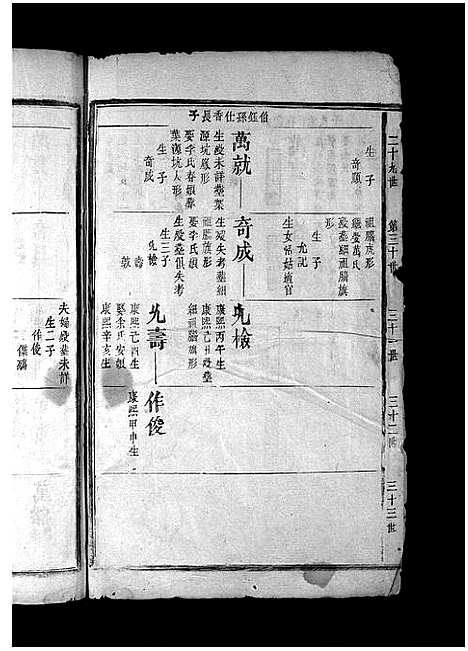 二十九世
第三十世
三十一世
三十二世
三十三世
伯鈺孫仕香長子
生子
奇順
萬就
生歿未詳葬葉
源坑人形
娶李氏春娘葬
葉源坑人形
生子
奇成
祖腦旗形
繼娶萬氏
歿葬細祖腦旗
形
生子
允記
生女
奇成
生歿失考葬細
祖腦旗形
娶李氏娘
生歿葬俱失考
生三子
允檢
壽
允檢
康熙丙午生
康熙己丑歿葬
細祖腦旗形
允壽
康熙己酉生
娶余氏安娘
康熙辛亥生
作俊
康熙甲申生
夫婦歿葬未詳
生二子
作俊
傑